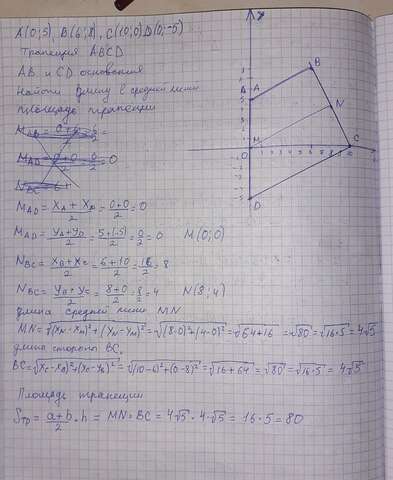 A(0;5), B(6;8), C(10;0) D(0;-5)
Трапеция ABCD
AB и CD основания
Найти длину средней линии
площадь трапеции
M_AD = (x_A + x_D)/2 = (0+0)/2 = 0
M_AD = (y_A + y_D)/2 = (5+(-5))/2 = 0/2 = 0 M(0;0)
N_BC = (x_B + x_C)/2 = (6+10)/2 = 16/2 = 8
N_BC = (y_B + y_C)/2 = (8+0)/2 = 8/2 = 4 N(8;4)
длина средней линии MN
MN = √((x_N - x_M)² + (y_N - y_M)²) = √((8-0)² + (4-0)²) = √(64+16) = √80 = √(16·5) = 4√5
длина стороны BC,
BC = √((x_C - x_B)² + (y_C - y_B)²) = √((10-6)² + (0-8)²) = √(16+64) = √80 = √(16·5) = 4√5
Площадь трапеции
S_тр = (a+b)/2 · h = MN · BC = 4√5 · 4√5 = 16·5 = 80
B
A
N
M
C
D